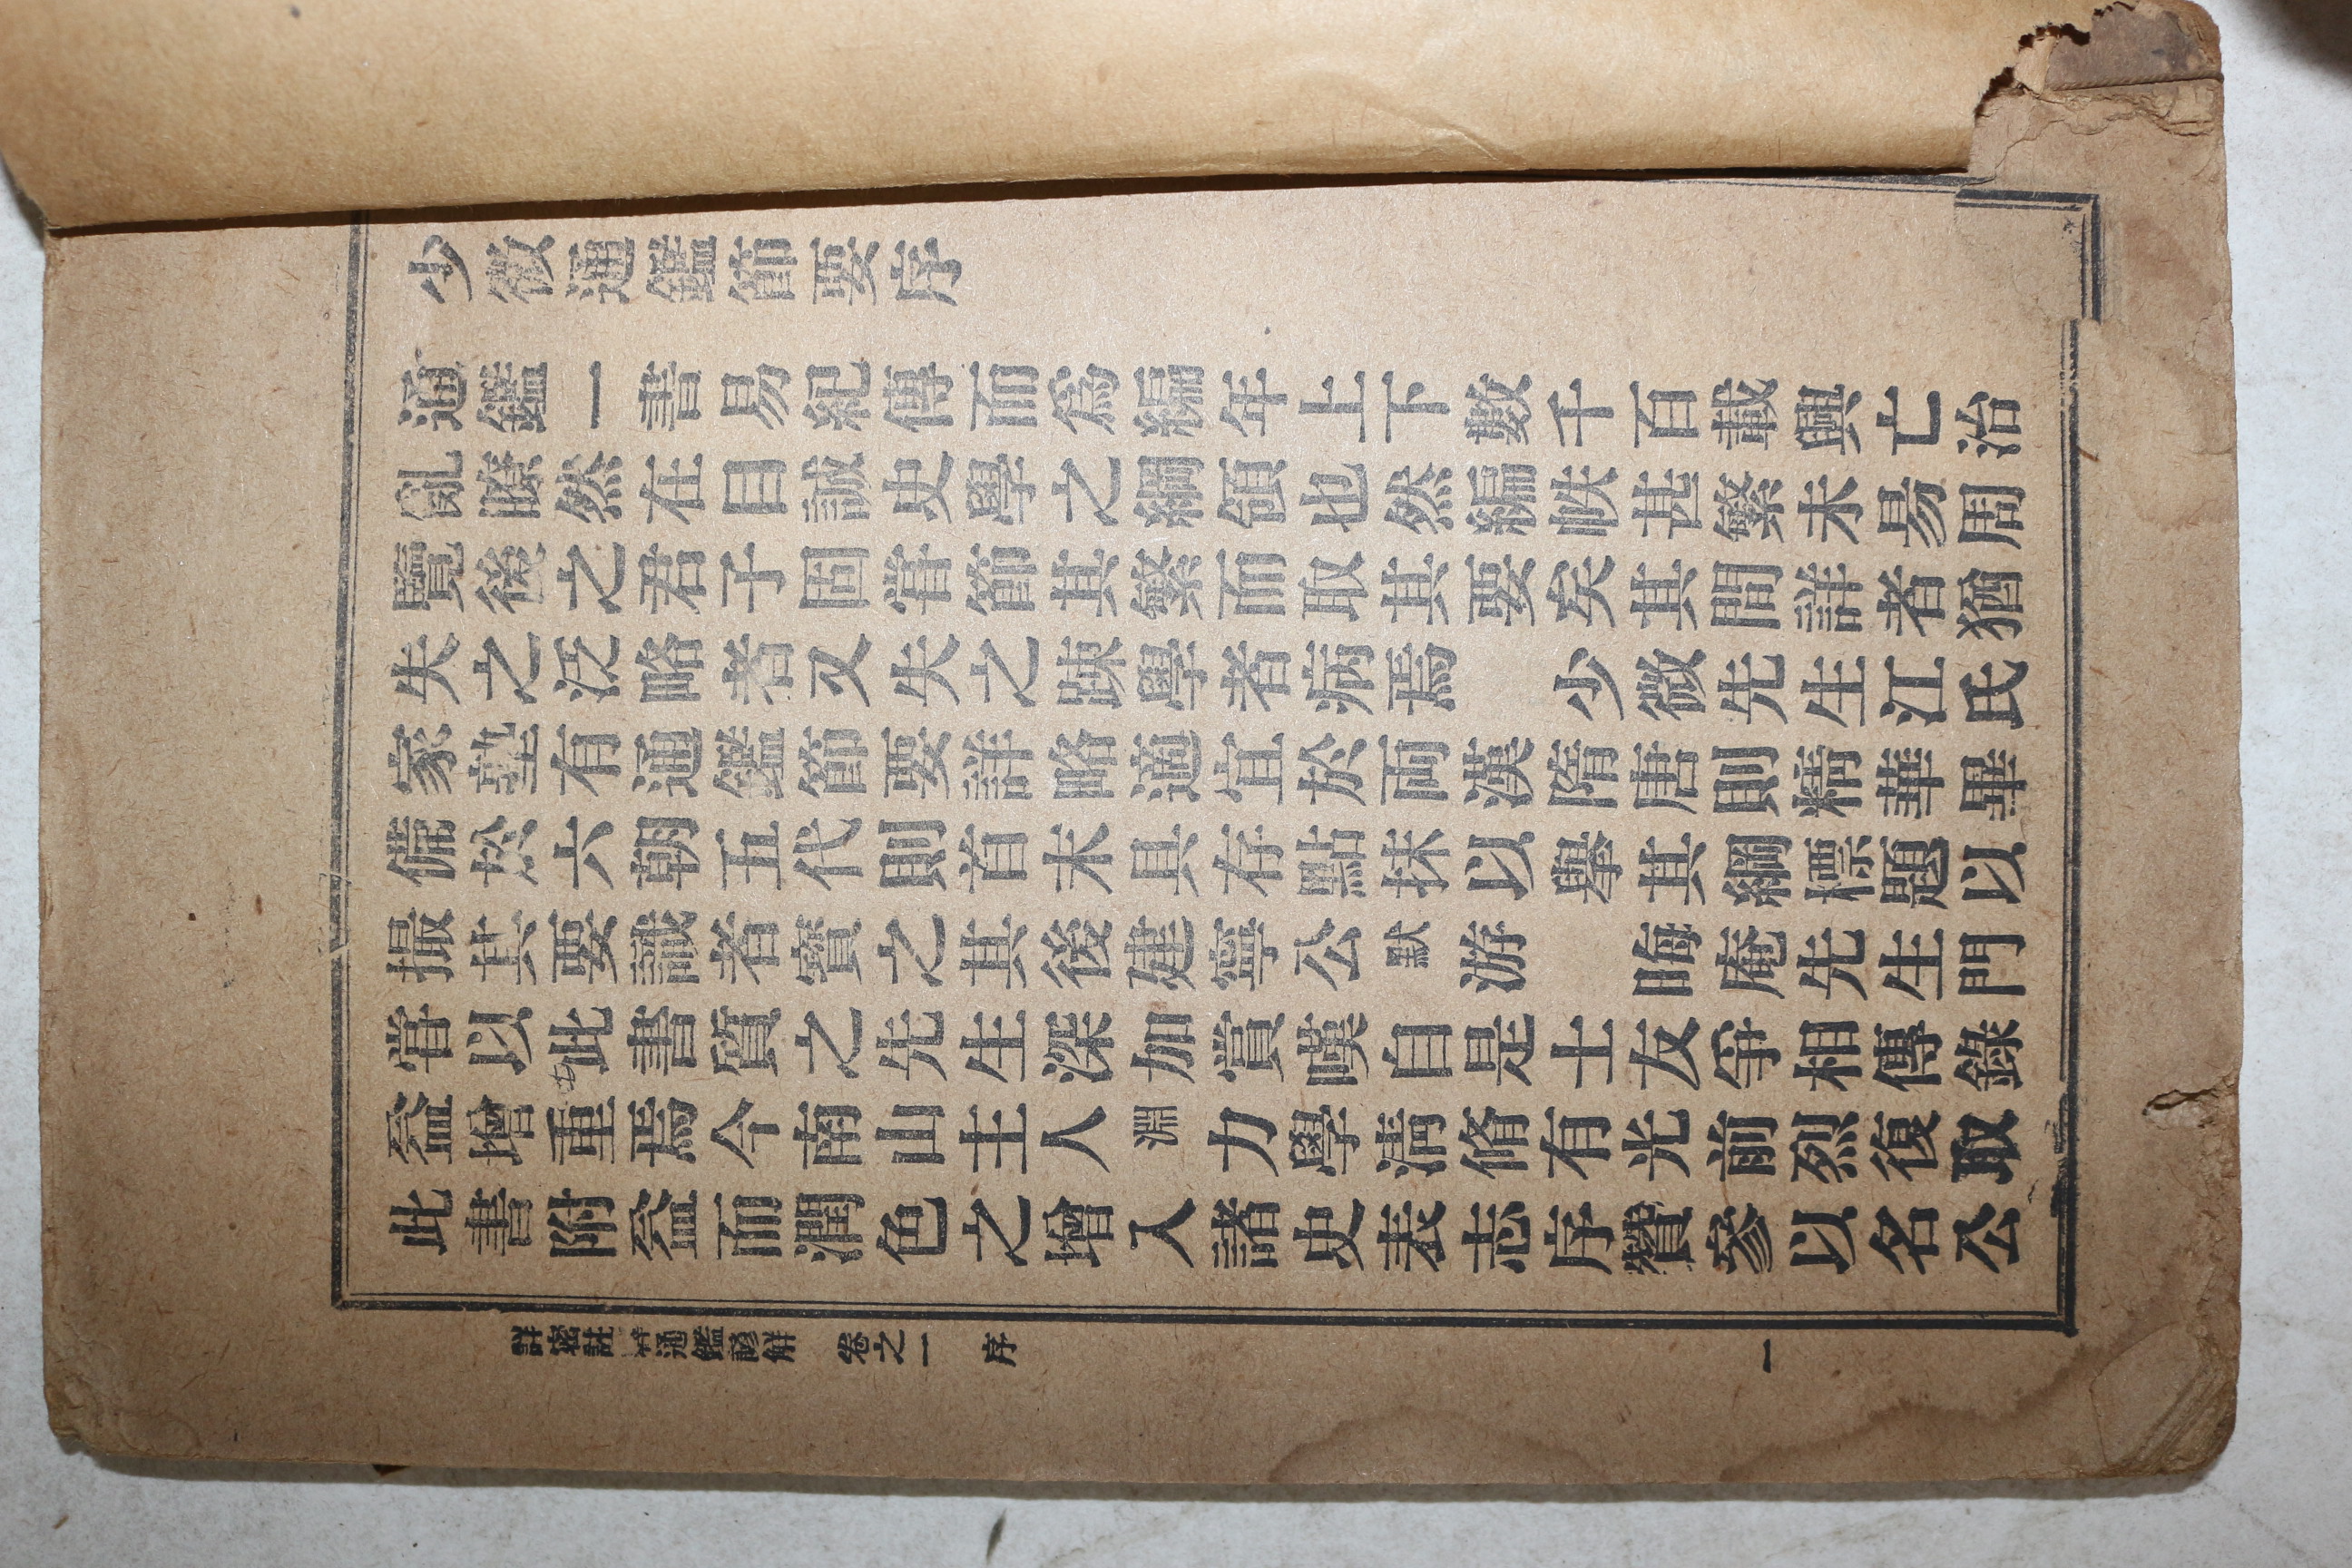 少微通鑑節要序
通鑑一書易紀傳而爲編年上下數千百載興亡治
亂瞭然在目誠史學之綱領也然編帙甚繁未易周
覽後之君子固嘗節其繁而取其要矣其間詳者猶
失之泛略者又失之踈學者病焉　少微先生江氏
家塾有通鑑節要詳略適宜於両漢隋唐則精華畢
備於六朝五代則首末具存點抹以擧其綱標題以
撮其要識者寶之其後建寧公默游　晦庵先生門
嘗以此書質之先生深加賞嘆自是士友爭相傳錄
益增重焉今南山主人淵力學淸脩有光前烈復取
此書附益而潤色之增入諸史表志序贊參以名公
詳密註釋通鑑諺解　卷之一　序　一